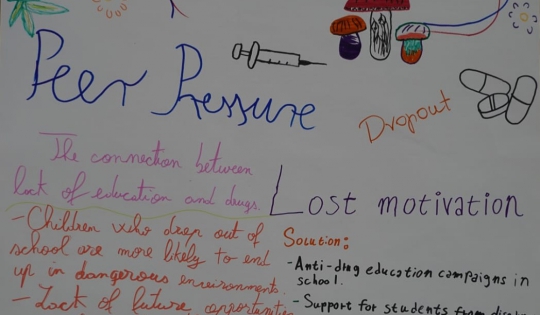 Peer Pressure
Dropout
The connection between
lack of education and drugs.
Lost motivation
- Children who drop out of
school are more likely to end
up in dangerous environments.
- Lack of future opportunities
Solution:
- Anti-drug education campaigns in
school.
- Support for students from